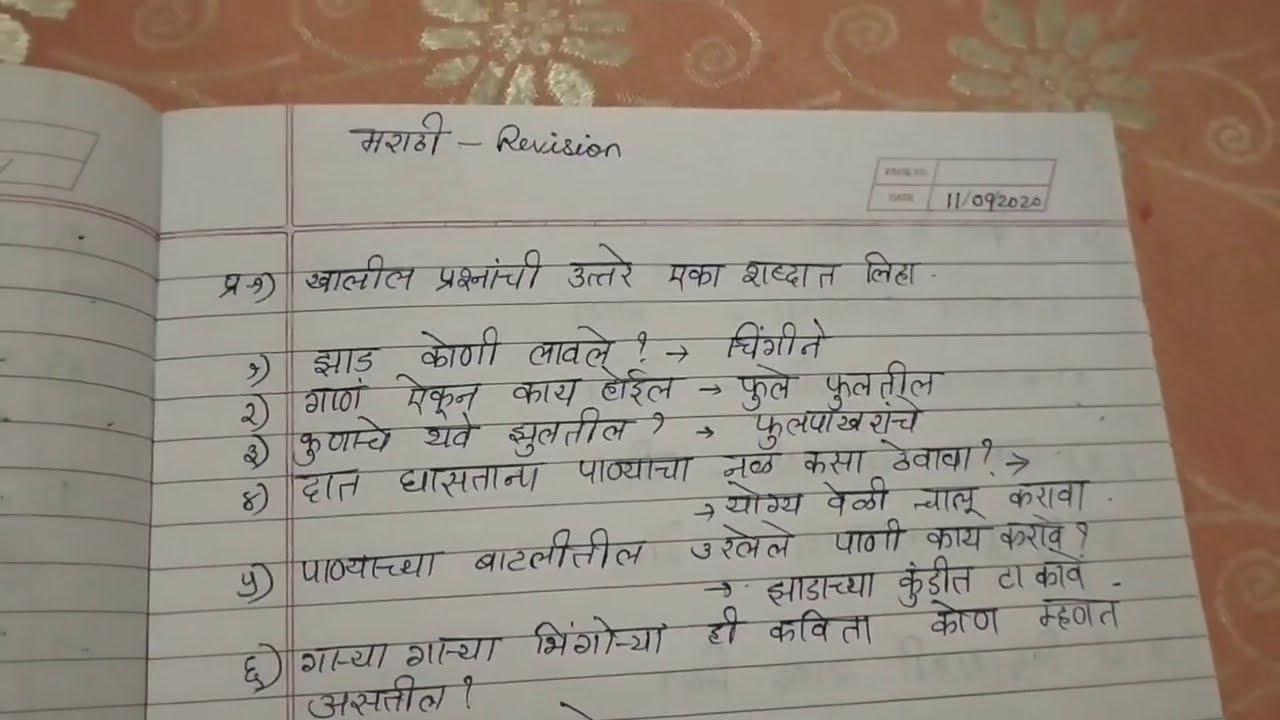 मराठी – Revision
PAGE NO.
DATE 11/09/2020
प्र १) खालील प्रश्नांची उत्तरे एका शब्दात लिहा .
१) झाड कोणी लावले ? → चिंगीने
२) गाणं ऐकून काय होईल → फुले फुलतील
३) कुणाचे थवे झुलतील ? → फुलपाखरांचे
४) दात घासताना पाण्याचा नळ कसा ठेवावा ? →
→ योग्य वेळी चालू करावा .
५) पाण्याच्या बाटलीतील उरलेले पाणी काय करावे ?
→ झाडाच्या कुंडीत टाकावे .
६) गाऱ्या गाऱ्या भिंगोऱ्या ही कविता कोण म्हणत
असतील ?